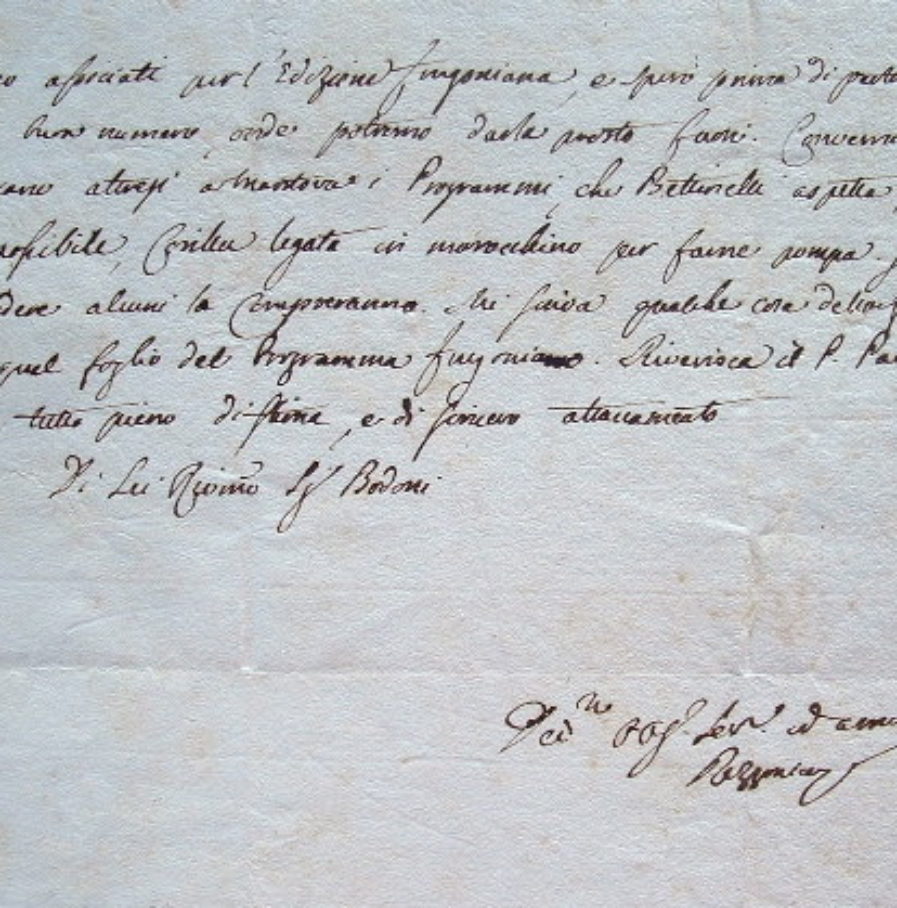 o associati per l'Edizione frugoniana, e spero prima di
buon numero, onde potremo darla presto fuori.
altresì a Mantova i Programmi, che Bettinelli aspetta
possibile, legata in marocchino per farne pompa.
alcuni la compreranno. Mi scriva qualche cosa
quel foglio del Programma frugoniano. Riverisca il P.
tutto pieno di stima, e di sincero attaccamento
Di Lei Sigr Bodoni
ed
Rezzonico